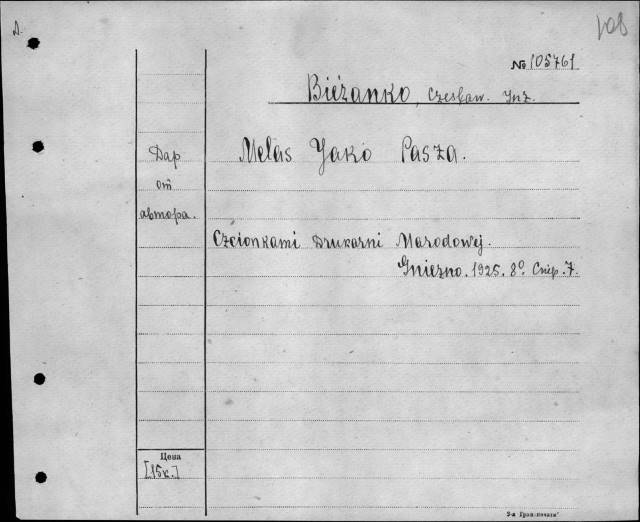 108
№ 105761
Bieżanko, Czesław. Inż.
Дар
от
автора.
Melas Jako Pasza.
Czcionkami Drukarni Narodowej.
Gniezno. 1925. 8º. Стр. 7.
Цена
[15к.]